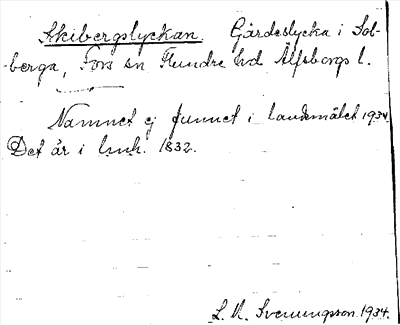 Skibergslyckan. Gärdeslycka i Sol-
berga, Fors sn Flundre hd Älfsborgs l.
Namnet ej funnet i landsmålet 1934.
Det är i 1832.
L. M. Svenungsson 1934.